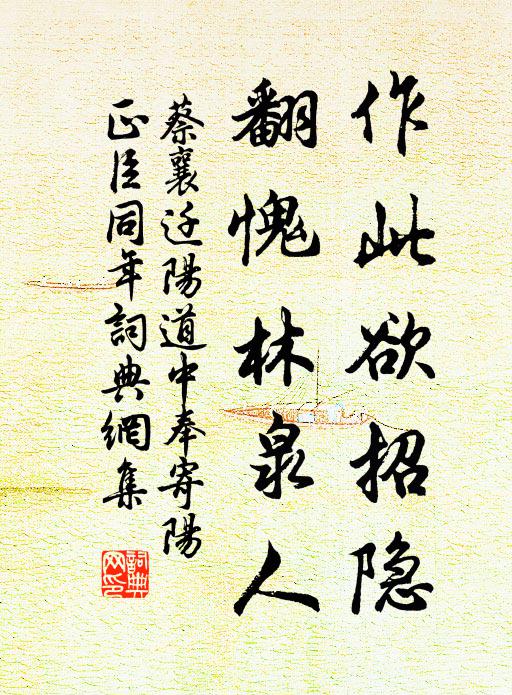 作此欲招隐
翻愧林泉人
蔡襄迁陽道中奉寄陽
正臣同年詞典網集
詞典
网印